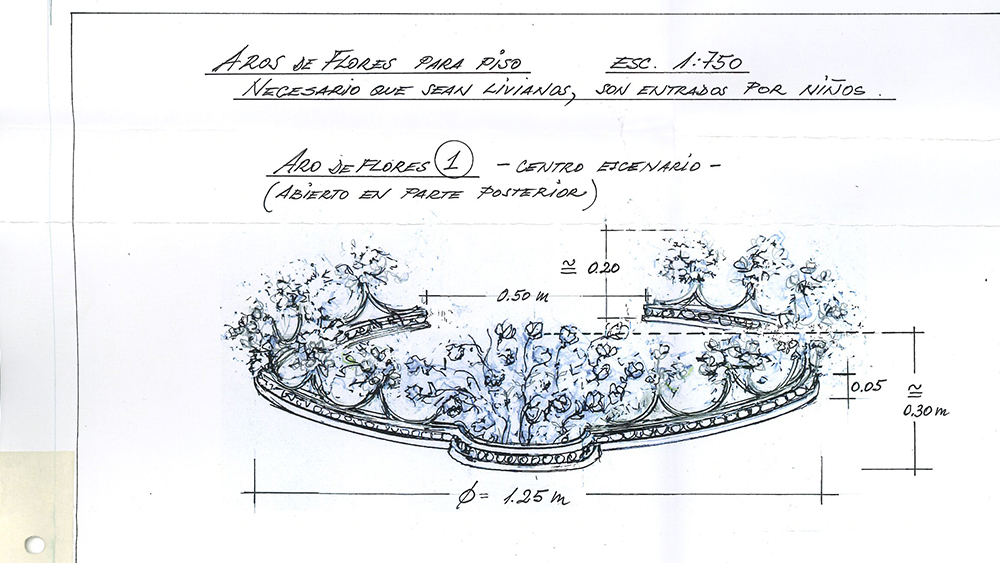 AROS DE FLORES PARA PISO ESC. 1:750
NECESARIO QUE SEAN LIVIANOS, SON ENTRADOS POR NIÑOS.
ARO DE FLORES 1 - CENTRO ESCENARIO -
(ABIERTO EN PARTE POSTERIOR)
≅ 0.20
0.50 m
0.05
≅ 0.30 m
ϕ = 1.25 m